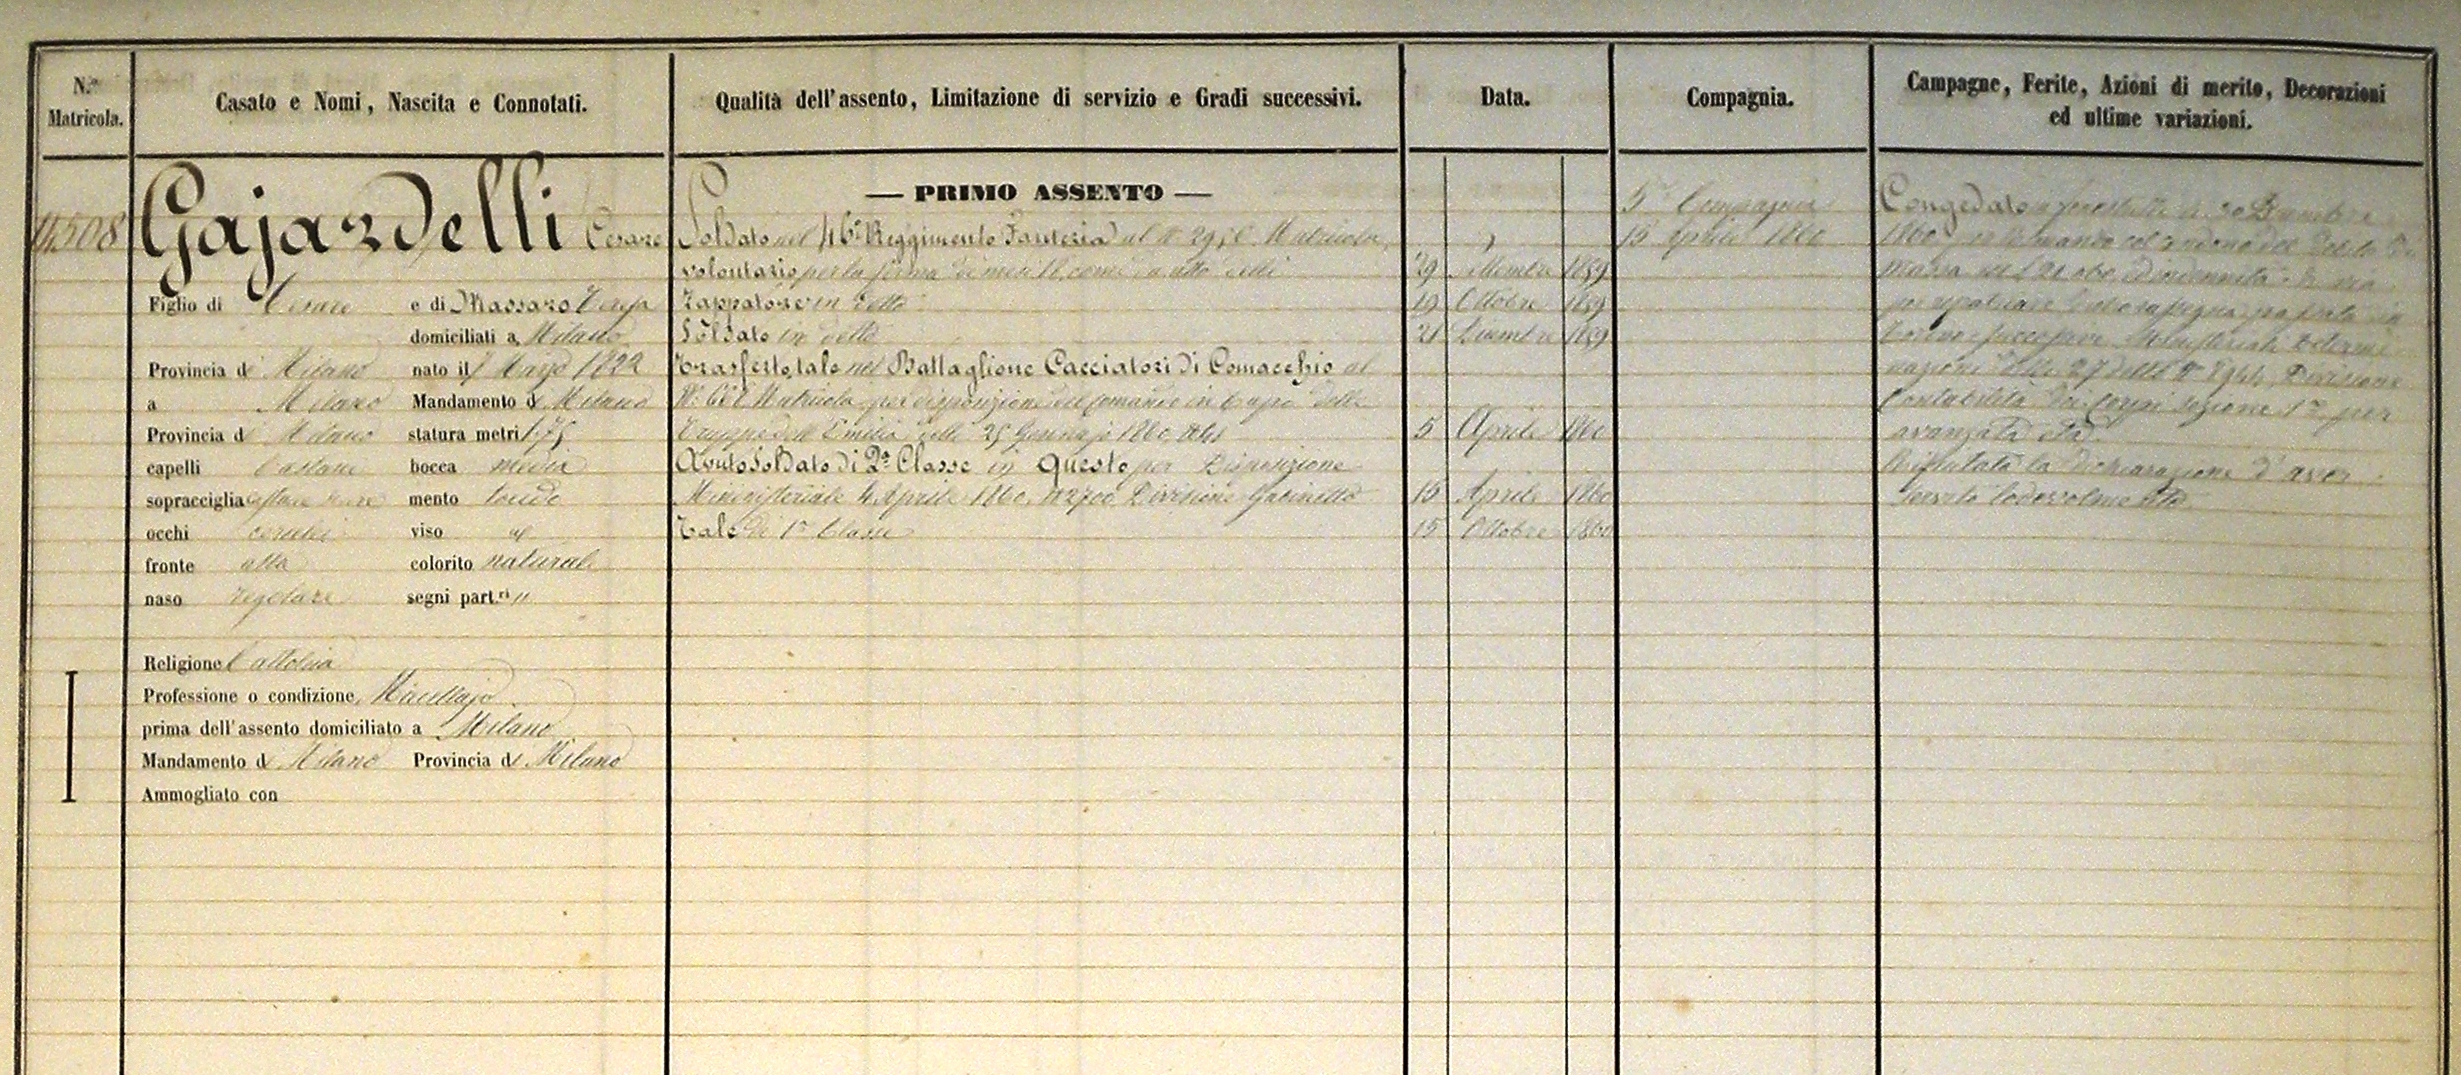 N.ro
Matricola.
Casato e Nomi, Nascita e Connotati.
Qualità dell'assento, Limitazione di servizio e Gradi successivi.
Data.
Compagnia.
Campagne, Ferite, Azioni di merito, Decorazioni
ed ultime variazioni.
14508
Gajardelli Cesare
Figlio di Cesare e di Massaro
domiciliati a Milano
Provincia di Milano nato il 7 Marzo 1822
a Milano Mandamento di Milano
Provincia di Milano statura metri 1,75
capelli Castani bocca media
sopracciglia castane mento tondo
occhi cerulei viso
fronte alta colorito naturale
naso regolare segni part.ri "
Religione Cattolica
Professione o condizione Macellajo
prima dell'assento domiciliato a Milano
Mandamento di Milano Provincia di Milano
Ammogliato con
— PRIMO ASSENTO —
Soldato nel 46° Reggimento Fanteria al N° Matricola
volontario per la ferma di mesi 18 come da atto delli 29 Settembre 1859
Zappatore in detto 19 Ottobre 1859
Soldato in detto 21 Dicembre 1859
Trasferto tale nel Battaglione Cacciatori di Comacchio al
N° Matricola per disposizione del Comando in Capo delle
Truppe dell'Emilia delle 25 Gennajo 1860 5 Aprile 1860
Avuto Soldato di 2a Classe in Questo per Disposizione
Ministeriale 4 Aprile 1860 N° 2700 Divisione Gabinetto 15 Aprile 1860
Tale di 1a Classe 15 Ottobre 1860
5a Compagnia
15 Aprile 1860
Congedato li 30 Dicembre
1860 del debito di
massa ed indennità di via
per
Torino Ministeriale
delle 27 detto N° Divisione
Contabilità dei Corpi Sezione 1a per
avanzata età.
Rifiutata la dichiarazione d'aver
servito lodevolmente